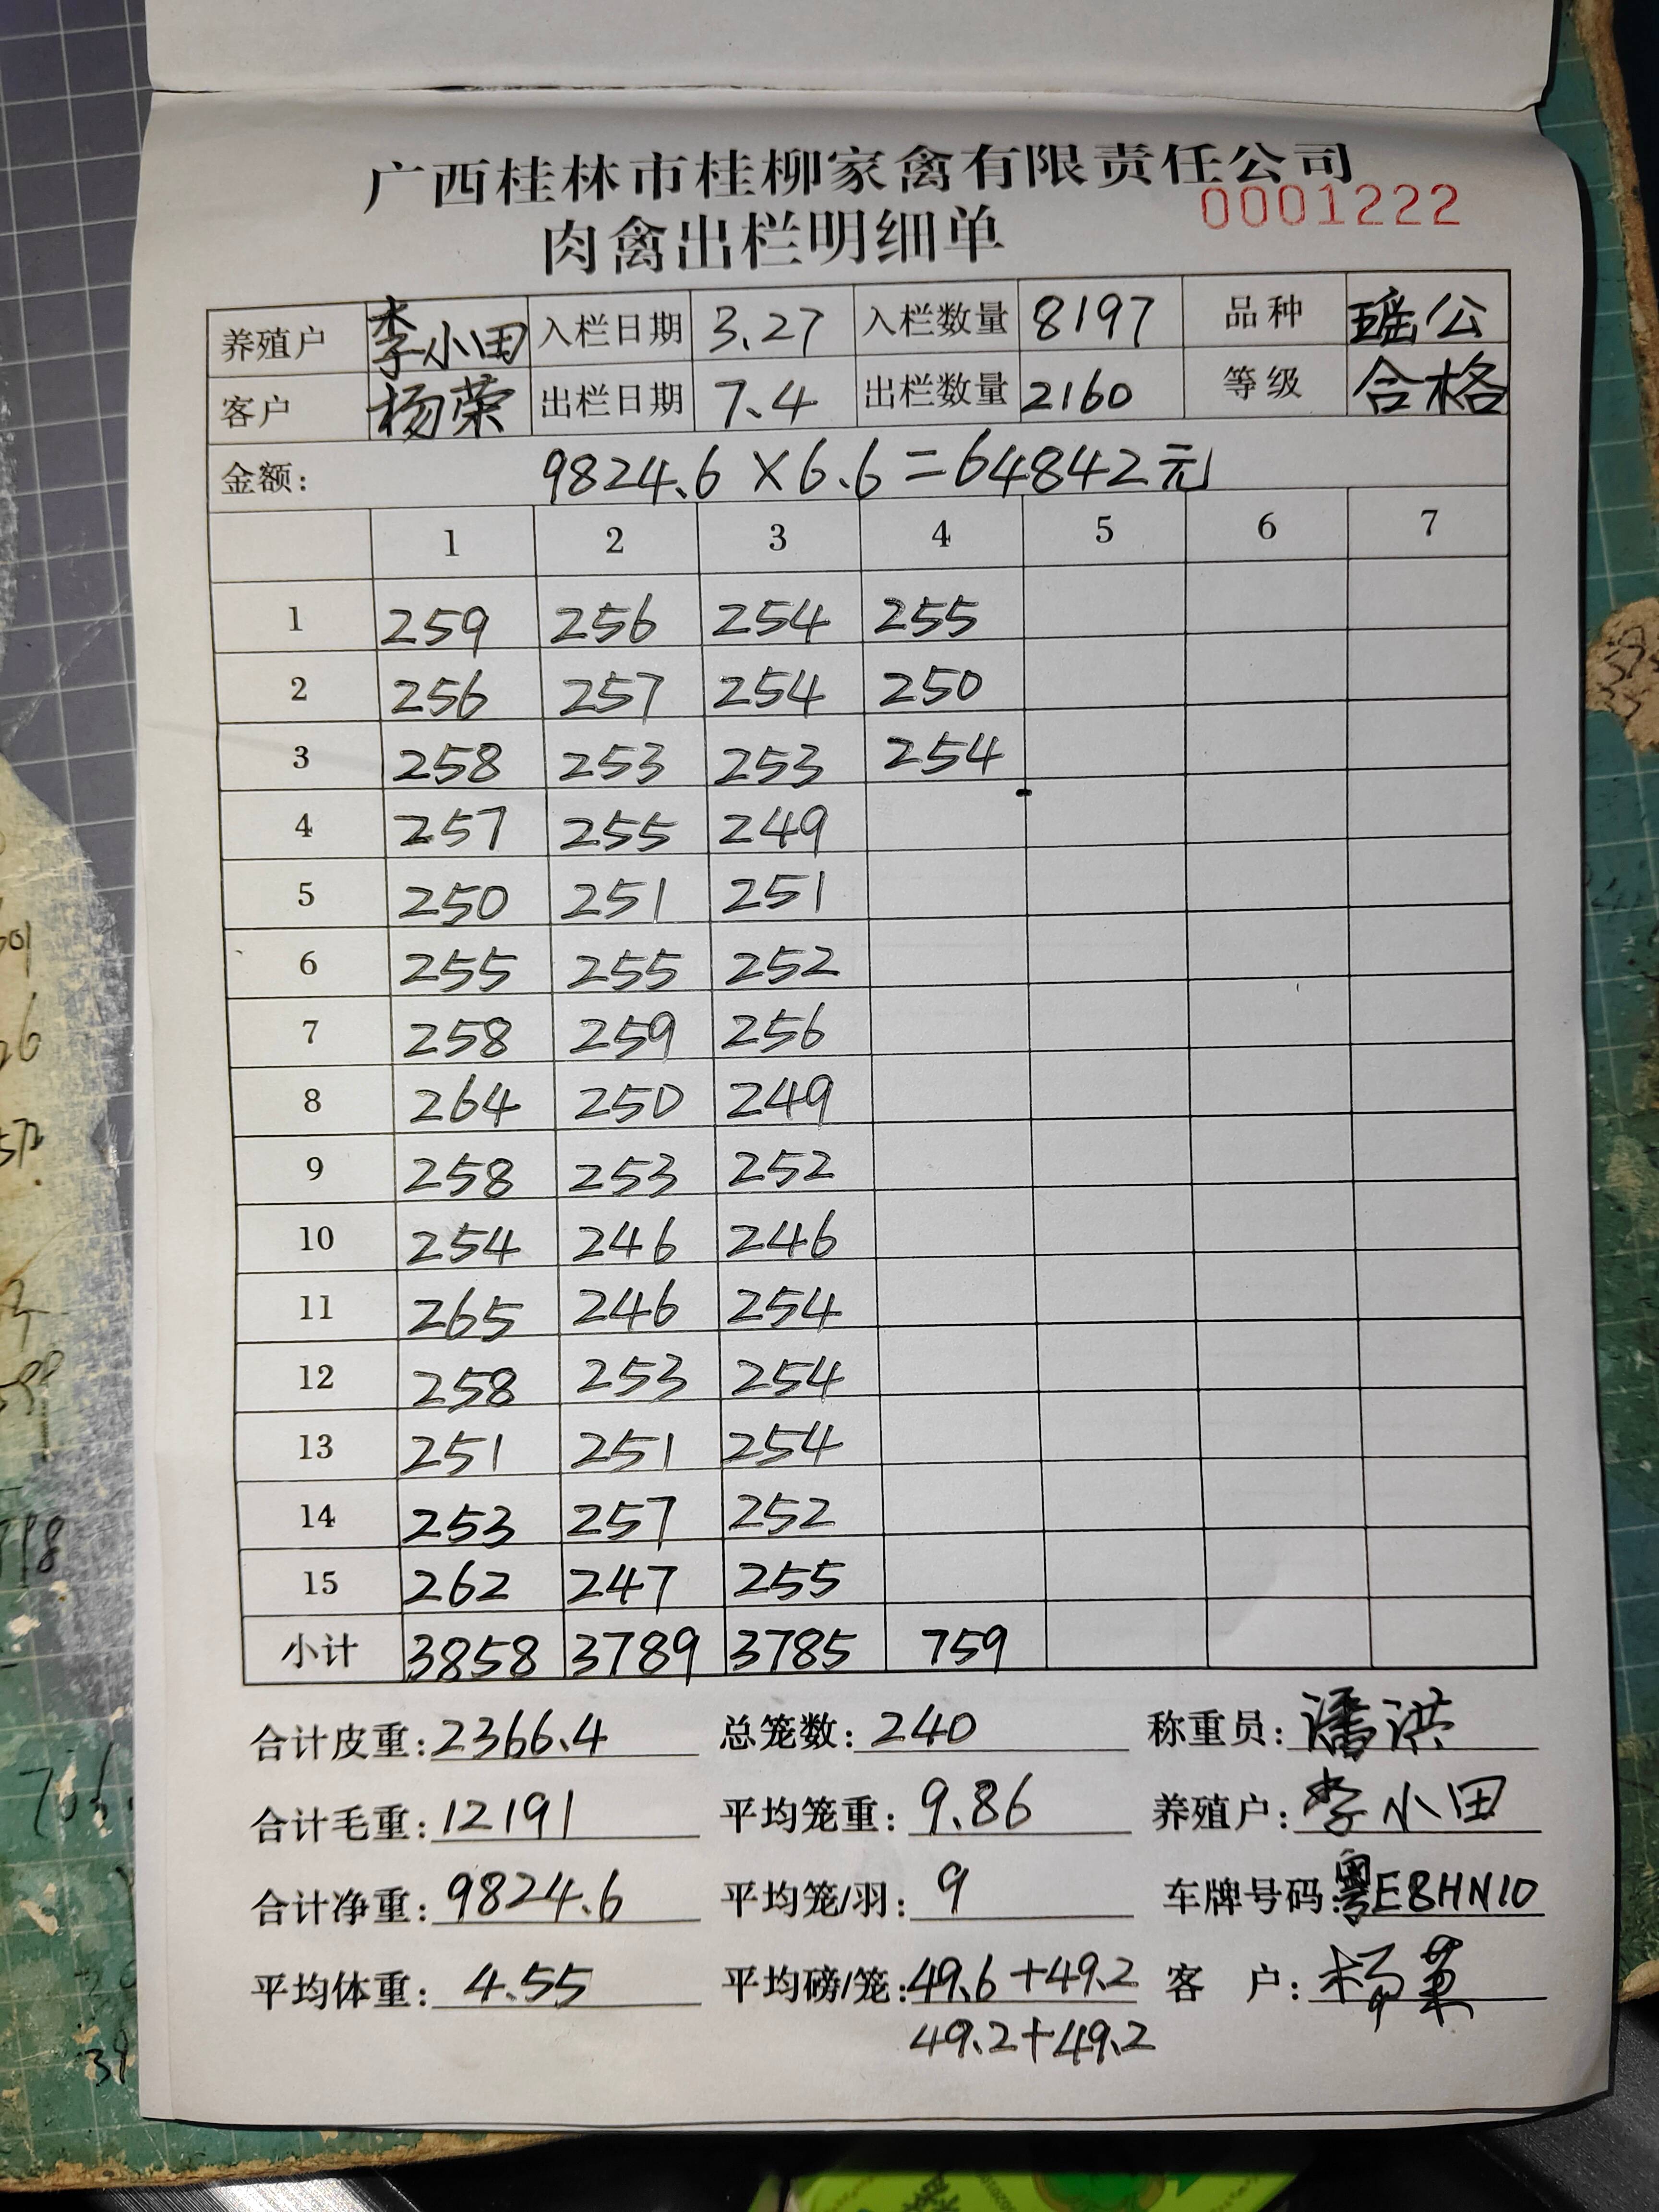 广西桂林市桂柳家禽有限责任公司
0001222
肉禽出栏明细单
养殖户 李小田 入栏日期 3.27 入栏数量 8197 品种 瑶公
客户 杨荣 出栏日期 7.4 出栏数量 2160 等级 合格
金额: 9824.6×6.6=64842元
1 2 3 4 5 6 7
1 259 256 254 255
2 256 257 254 250
3 258 253 253 254
4 257 255 249
5 250 251 251
6 255 255 252
7 258 259 256
8 264 250 249
9 258 253 252
10 254 246 246
11 265 246 254
12 258 253 254
13 251 251 254
14 253 257 252
15 262 247 255
小计 3858 3789 3785 759
合计皮重:2366.4 总笼数:240 称重员:潘洪
合计毛重:12191 平均笼重:9.86 养殖户:李小田
合计净重:9824.6 平均笼/羽:9 车牌号码:粤E8HN10
平均体重:4.55 平均磅/笼:49.6+49.2 客户:杨荣
49.2+49.2